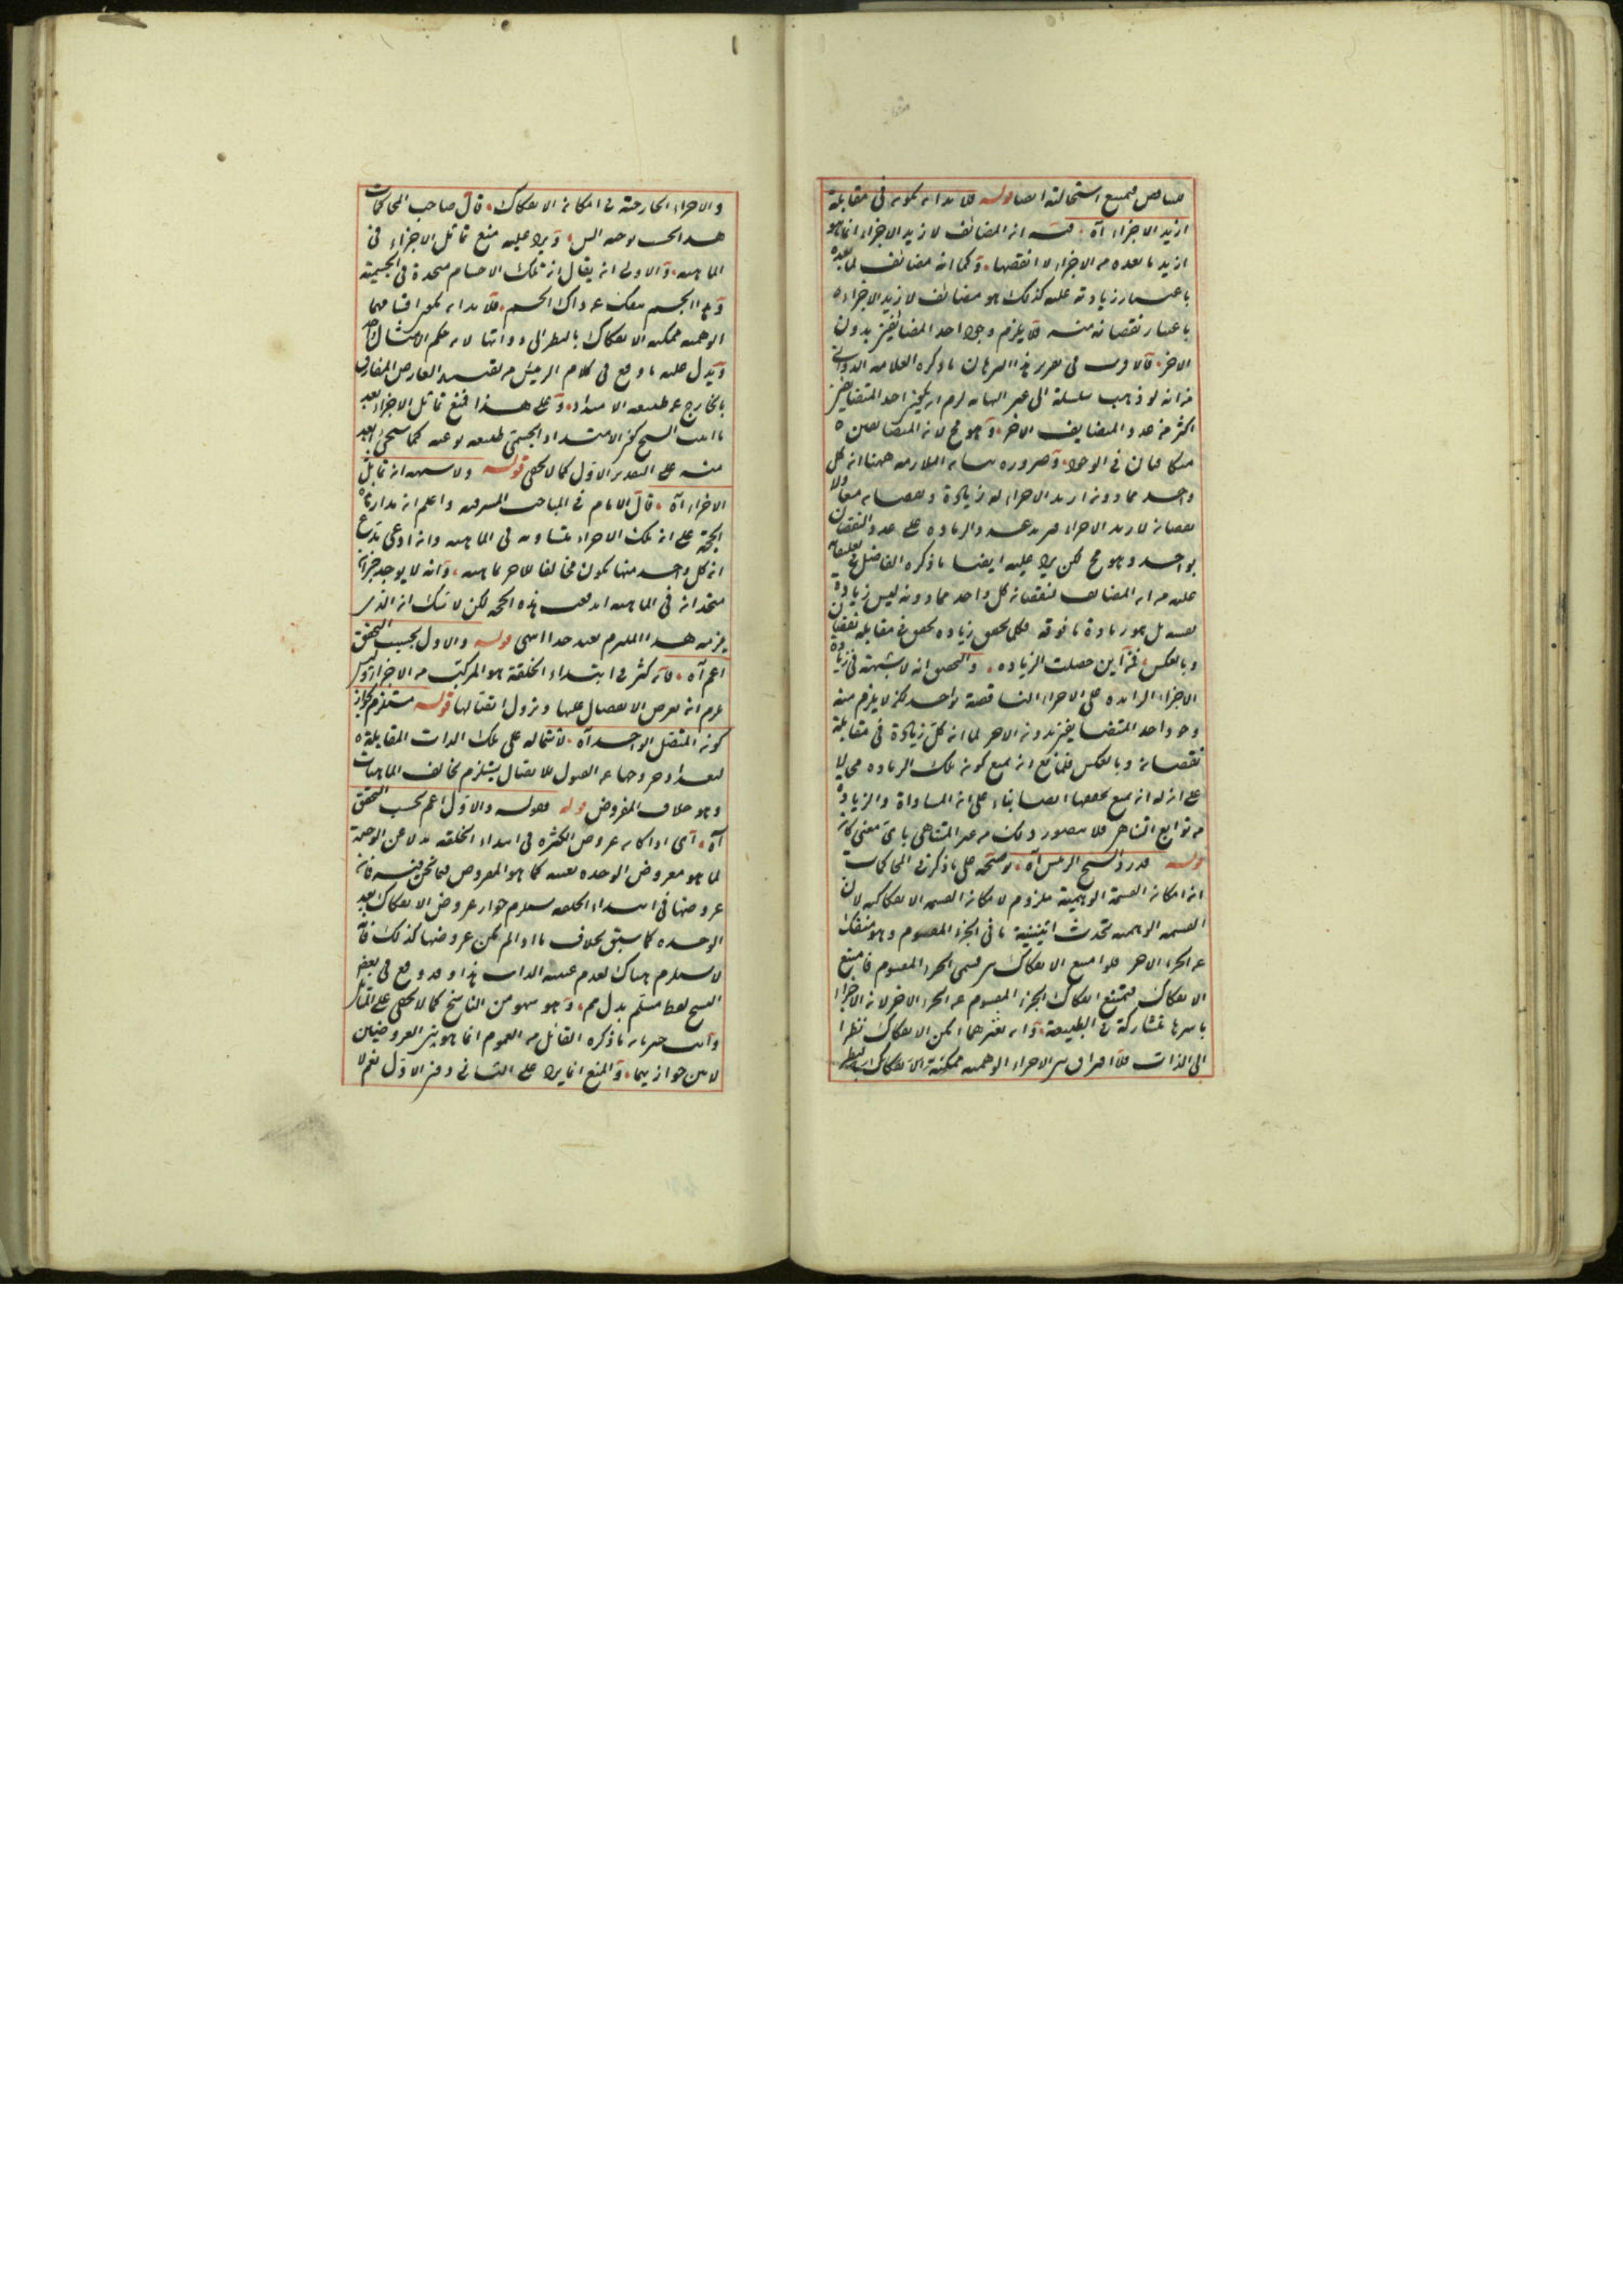 فتناقص فيمنع استحالته ايضا قوله فلا بد ان يكون في مقابلة
ازيد الاجزاء آه فيه ان المضائف لازيد الاجزاء انما هو
ازيد ما بعده من الاجزاء لا انقصها وكما انه مضائف لما بعده
باعتبار زيادته عليه كذلك هو مضائف لازيد الاجزاء
باعتبار نقصانه منه فلا يلزم وجود احد المضائفين بدون
الاخر فالاولى في تقرير هذا البرهان ما ذكره العلامة الدواني
من انه لو ذهب سلسلة الى غير النهاية لزم ان يكون احد المتضايفين
اكثر من عدد المتضايف الاخر وهو مح لان المتضايفين
متكافيان في الوجود وضرورة بيان الملازمة ههنا ان كل
واحد مما دون ازيد الاجزاء له زيادة ونقصان معا ولا
نقصان لازيد الاجزاء فيزيد عدد الزيادة على عدد النقصان
بواحد وهو مح لكن يرد عليه ايضا ما ذكره الفاضل
عليه من ان المضائف لنقصان كل واحد مما دونه ليس زيادة
نفسه بل هو زيادة ما فوقه فكلما تحقق زيادة تحقق في مقابله نقصان
وبالعكس فمن اين حصلت الزيادة والتحقيق انه لا شبهة في زيادة
الاجزاء الزائدة على الاجزاء الناقصة بواحد لكن لا يلزم منه
وجود احد المتضايفين بدون الاخر لما ان كل زيادة في مقابلة
نقصان وبالعكس فللمانع ان يمنع كون تلك الزيادة محالا
على ان له ان يمنع تحققها ايضا بناء على ان المساواة والزيادة
من توابع التناهي فلا يتصور ذلك في غير المتناهي باى معنى كان
قوله قدر د الشيخ الرئيس آه توضيحه على ما ذكر في المحاكمات
ان امكان القسمة الوهمية ملزوم لامكان القسمة الانفكاكية لان
القسمة الوهمية تحدث اثنينية ما في الجزء المقسوم وهو منفك
عن الجزء الاخر فلو امتنع الانفكاك بين قسمى الجزء المقسوم فامتنع
الانفكاك فيمتنع انفكاك الجزء المقسوم عن الجزء الاخر لان الاجزاء
باسرها متشاركة في الطبيعة وان بغيرهما امكن الانفكاك نظرا
الى الذات فلا افتراق بين الاجزاء الوهمية ممكنة الانفكاك
والاجزاء الخارجية في امكان الانفكاك قال صاحب المحاكمات
هذا احسن توجيه ويرد عليه منع تماثل الاجزاء في
الماهية والاولى ان يقال ان تلك الاجسام متحدة في الجسمية
وهذا الجسم منفك عن ذاك الجسم فلا بد ان يكون اقسامها
الوهمية ممكنة الانفكاك بالنظر الى ذواتها لان حكم الامثال واحد
ويدل عليه ما وقع في كلام الرئيس من تقييد العارض المفارق
بالخارج عن طبيعة الامتداد وعلى هذا فمنع تماثل الاجزاء بعد
ما اثبت الشيخ كون الامتداد الجسمي طبيعة نوعية كما سيجئ ابعد
منه على التقدير الاول كما لا يخفى قوله ولا شبهة ان تماثل
الاجزاء آه قال الامام في المباحث المشرقية واعلم ان مدار هذه
الحجة على ان تلك الاجزاء متساوية في الماهية وان ادعى مدع
ان كل واحد منها يكون مخالفا للاخر بماهية وانه لا يوجد جزءان
متحدان في الماهية اندفعت هذه الحجة لكن لا شك ان الذي
يلزمه هذا الملتزم بعيد جدا انتهى قوله والاول بحسب التحقق
اعم آه فانه كثر في ابتداء الخلقة هو المركب من الاجزاء وليس
يلزم ان يعرض الاتصال عليها وتزول انفصالها قوله مستلزم لجواز
كون المتصل الواحد آه لاشتماله على تلك الذات المقابلة
للتعدد وخروجها عن القبول للانفصال يستلزم تخالف الماهيات
وهو خلاف المفروض قوله فقوله والاول اعم بحسب التحقق
آه اى اذا كان عروض الكثرة في ابتداء الخلقة بدلا عن الوحدة
لما هو معروض الوحدة بعينه كما هو المفروض فيما نحن فيه فان
عروضها في ابتداء الخلقة يستلزم جواز عروض الانفكاك بعد
الوحدة كما سبق بخلاف ما اذا لم يكن عروضها كذلك فانه
لا يستلزم هناك لعدم عينية الذات هذا وقد وقع في بعض
النسخ لفظ مسلم بدل مم وهو سهو من الناسخ كما لا يخفى على المتأمل
وانت خبير بان ما ذكره القائل من العموم انما هو بين العروضين
لا بين جوازيهما والمنع انما يرد على الثاني دون الاول نعم لا